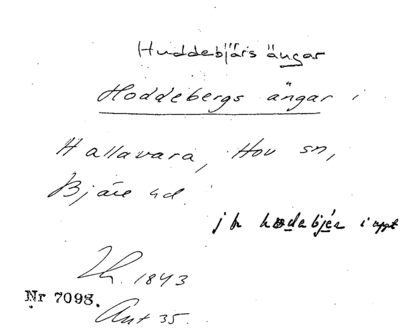 Huddebjärs ängar
Hoddebergs ängar i
Hallavara, Hov sn,
Bjäre hd.
jfr hodabjér i uppt
Th. 1843
Nr 7098.
Ant 35.